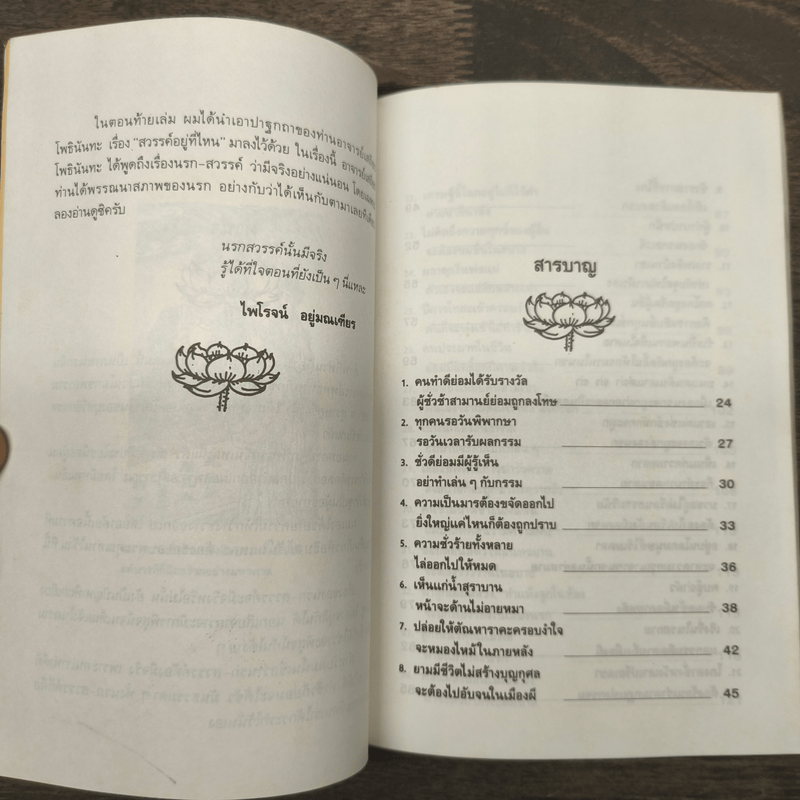 ในตอนท้ายเล่ม ผมได้นำเอาปาฐกถาของท่านอาจารย์
โพธินันทะ เรื่อง "สวรรค์อยู่ที่ไหน" มาลงไว้ด้วย ในเรื่องนี้ อาจารย์
โพธินันทะ ได้พูดถึงเรื่องนรก-สวรรค์ ว่ามีจริงอย่างแน่นอน
ท่านได้พรรณนาสภาพของนรก อย่างกับว่าได้เห็นกับตามาเลย
ลองอ่านดูซิครับ
นรกสวรรค์นั้นมีจริง
รู้ได้ที่ใจตอนที่ยังเป็น ๆ นี่แหละ
ไพโรจน์ อยู่มณเฑียร
สารบาญ
1. คนทำดีย่อมได้รับรางวัล
ผู้ชั่วช้าสามานย์ย่อมถูกลงโทษ 24
2. ทุกคนรอวันพิพากษา
รอวันเวลารับผลกรรม 27
3. ชั่วดีย่อมมีผู้รู้เห็น
อย่าทำเล่น ๆ กับกรรม 30
4. ความเป็นมารต้องขจัดออกไป
ยิ่งใหญ่แค่ไหนก็ต้องถูกปราบ 33
5. ความชั่วร้ายทั้งหลาย
ไล่ออกไปให้หมด 36
6. เห็นแก่น้ำสุราบาน
หน้าจะด้านไม่อายหมา 38
7. ปล่อยให้ตัณหาราคะครอบงำใจ
จะหมองไหม้ในภายหลัง 42
8. ยามมีชีวิตไม่สร้างบุญกุศล
จะต้องไปอับจนในเมืองผี 45